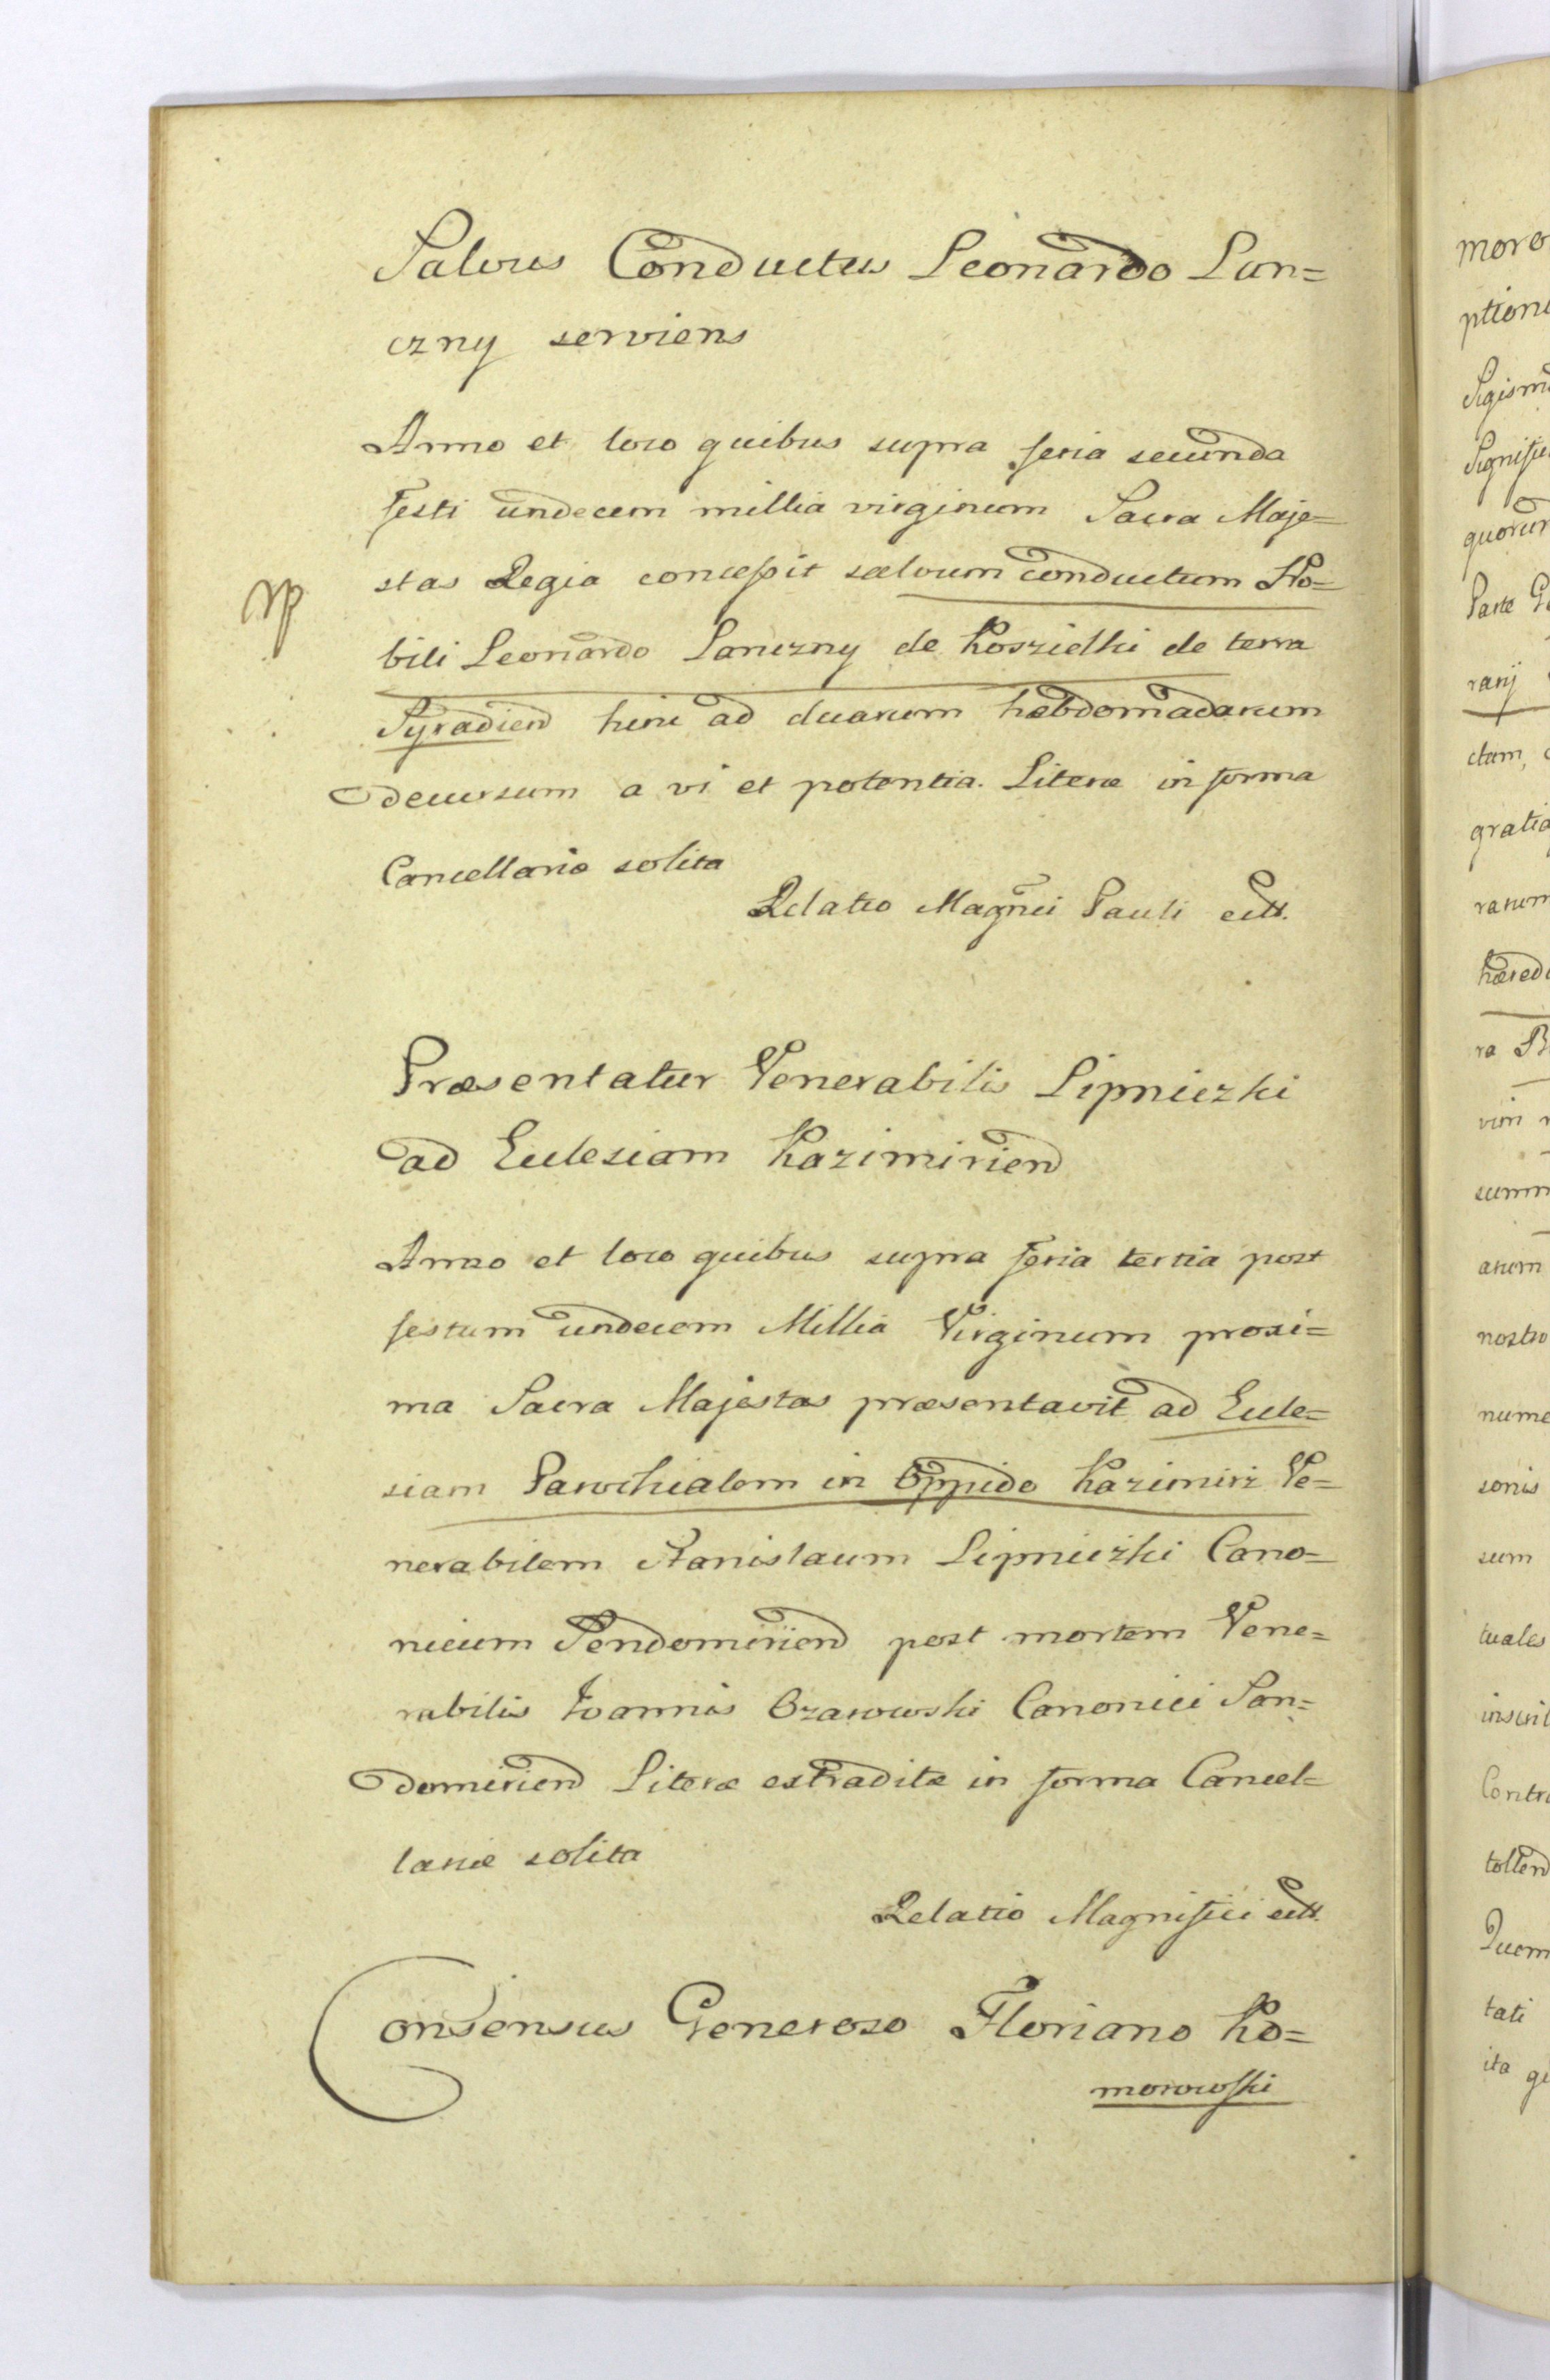 Salvus Conductus Leonardo Lan=
czny serviens
Anno et loco quibus supra feria secunda
festi undecem millia virginum Sacra Maje=
stas Regia concessit salvum conductum No=
bili Leonardo Lanczny de Koszielki de terra
Syradien hinc ad duarum hebdomadarum
decursum a vi et potentia. Literæ in forma
Cancellariæ solita
Relatio Magnci Pauli ectt.
Præsentatur Venerabilis Lipniczki
ad Eclesiam Kazimirien
Anno et loco quibus supra feria tertia post
festum undecem Millia Virginum proxi=
ma Sacra Majestas præsentavit ad Ecle=
siam Parochialem in Oppido Kazimirz Ve=
nerabilem Stanislaum Lipniczki Cano=
nicum Sendomirien post mortem Vene=
rabilis Joannis Ozarowski Canonici San=
domirien Literæ extraditæ in forma Cancel=
lariæ solita
Relatio Magnifici ectt.
Consensus Generoso Floriano Ko=
morowski
moro
ption
Sigism
Signifi
quorum
Parte
ranj
ctam,
gratia
rarum
hæred
ra
vim
summ
arum
nostro
nume
sonis
sum
tuales
inscri
Contra
tollend
Quem
tati
ita